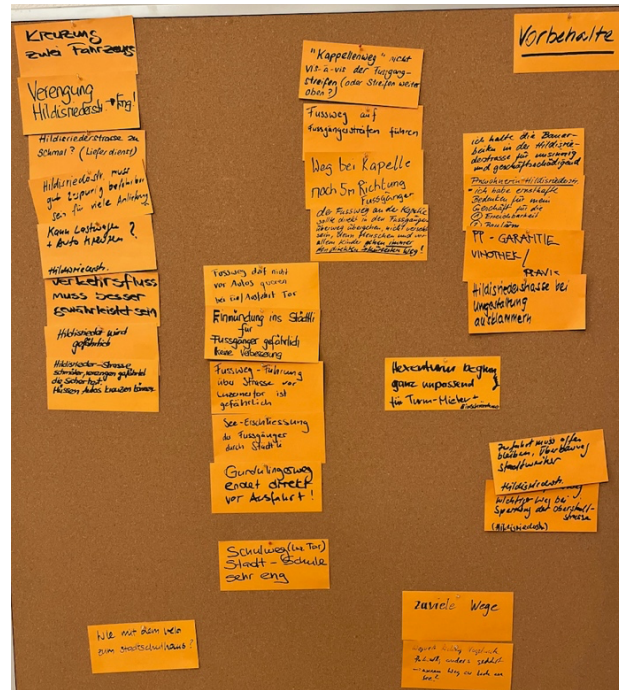 Vorbehalte
Kreuzung
zwei Fahrzeuge
Verengung
Hildisriederstr → Eng!
Hildisriederstrasse zu
schmal? (Lieferdienst)
Hildisriederstr. muss
gut zspurig befahrbar
sein für viele
Kann Lastwagen
+ Auto kreuzen?
Hildisriederstr.
Verkehrsfluss
muss besser
gewährleistet sein
Hildisrieder wird
gefährlich
Hildisrieder-Strasse
schmäler, verengen gefährdet
die Sicherheit.
Müssen Autos kreuzen können
"Kappellenweg" nicht
vis-à-vis der Fussgang-
streifen (oder Streifen weiter
oben?)
Fussweg auf
Fussgängerstreifen führen
Weg bei Kapelle
noch 5m Richtung
Fussgänger
der Fussweg an der Kapelle
sollte direkt in den Fussgänger-
überweg übergehen, nicht versetzt
sein, denn Menschen und vor
allem Kinder gehen immer
den direkten schnellsten Weg!
Fussweg darf nicht
vor Autos queren
bei Ein/Ausfahrt Tor
Einmündung ins Städtli
für
Fussgänger gefährlich
keine Verbesserung
Fussweg-Führung
über Strasse vor
Luzernertor ist
gefährlich
See-Erschliessung
für Fussgänger
durch Städtli
endet direkt
vor Ausfahrt!
Schulweg (Luz. Tor)
Stadt - Schule
sehr eng
Wie mit dem Velo
zum Stadtschulhaus?
ich halte die Bauar-
beiten in der Hildisrie-
derstrasse für unsinnig
und geschäftsschädigend
- ich habe ernsthafte
Bedenken für mein
Geschäft für die
① Erreichbarkeit
②
PP - GARANTIE
VINOTHEK /
PRAXIS
Hildisriederstrasse bei
Umgestaltung
ausklammern
Hexenturm
ganz unpassend
für Turm-Mieter +
Zufahrt muss offen
bleiben, Überbauung
Hildisriederstr.
wichtiger Weg bei
Sperrung der Oberstadt-
strasse
(Hildisriederstr)
zuviele Wege